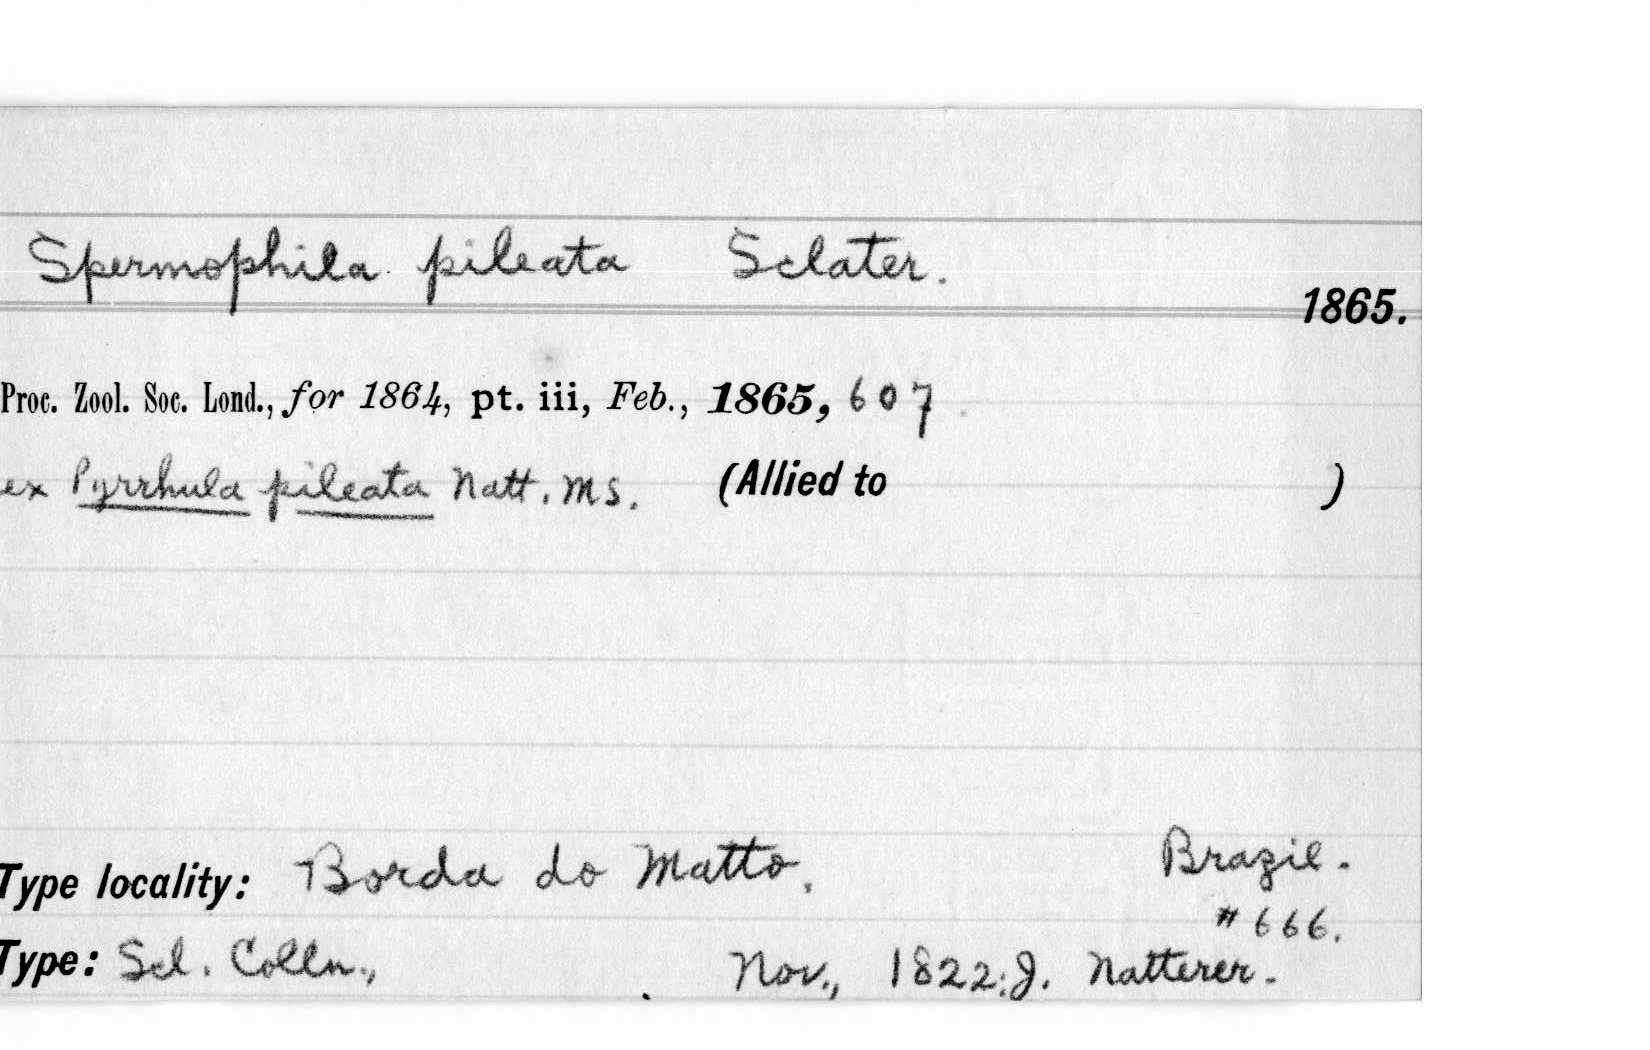 Spermophila pileata Sclater.
1865.
Proc. Zool. Soc. Lond., for 1864, pt. iii, Feb., 1865, 607
ex Pyrrhula pileata Natt. MS. (Allied to )
Type locality: Borda do Matto, Brazil.
#666.
Type: Scl. Colln., Nov., 1822: J. Natterer.